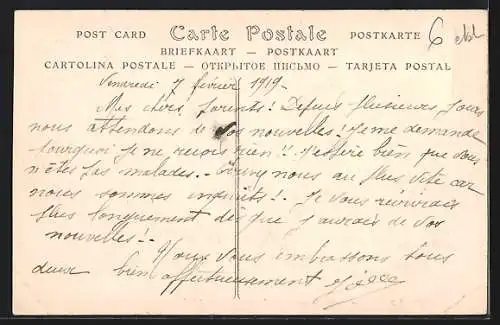 POST CARD Carte Postale POSTKARTE 6
BRIEFKAART — POSTKAART
CARTOLINA POSTALE — ОТКРЫТОЕ ПИСЬМО — TARJETA POSTAL
Vendredi 7 février 1919-
Mes chers Parents! Depuis plusieurs jours
nous attendons de vos nouvelles! Je me demande
pourquoi je ne reçois rien!! J'espère bien que vous
n'êtes pas malades.- Ecrivez nous au plus vite car
nous sommes inquiets!- Je vous récrirai
plus longuement dès que j'aurais de vos
nouvelles!-
Nous vous embrassons tous
deux bien affectueusement